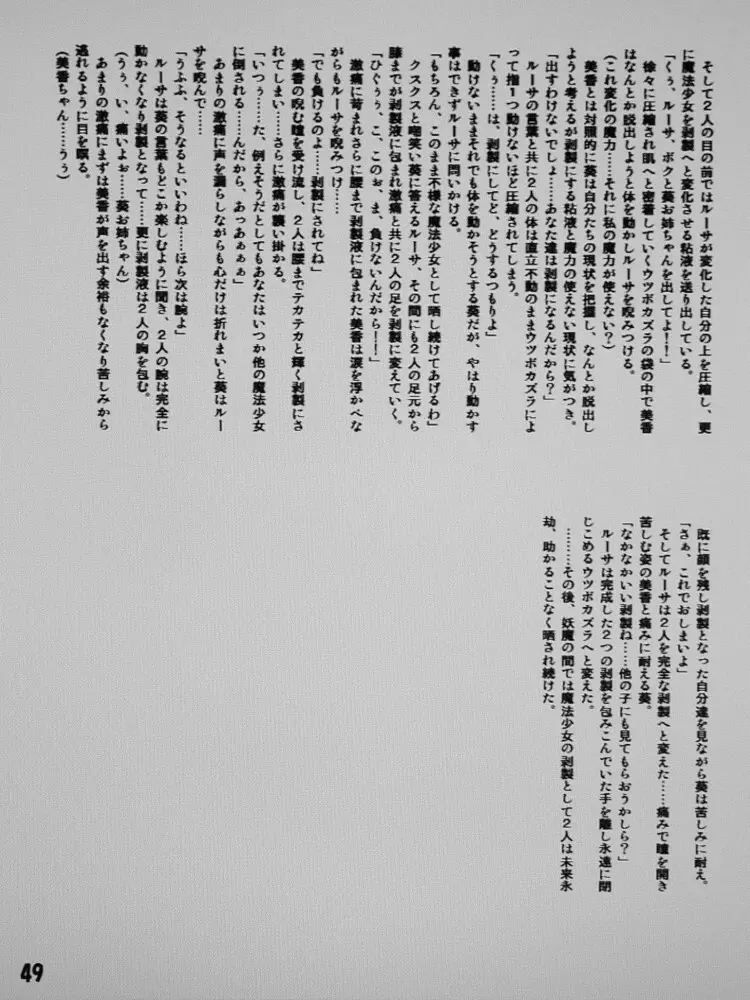 そして2人の目の前ではルーサが変化した自分の上を圧縮し、更
に魔法少女を剥製へと変化させる粘液を送り出している。
「くぅ、ルーサ、ボクと葵お姉ちゃんを出してよ！！」
徐々に圧縮され肌へと密着していくウツボカズラの袋の中で美香
はなんとか脱出しようと体を動かしルーサを睨みつける。
（これ変化の魔力……それに私の魔力が使えない？）
美香とは対照的に葵は自分たちの現状を把握し、なんとか脱出し
ようと考えるが剥製にする粘液と魔力の使えない現状に気がつき。
「出すわけないでしょ……あなた達は剥製になるんだから？」
ルーサの言葉と共に2人の体は直立不動のままウツボカズラによ
って指1つ動けないほど圧縮されてしまう。
「くぅ……は、剥製にしてど、どうするつもりよ」
動けないままそれでも体を動かそうとする葵だが、やはり動かす
事はできずルーサに問いかける。
「もちろん、このまま不様な魔法少女として晒し続けてあげるわ」
クスクスと嘲笑い葵に答えるルーサ、その間にも2人の足元から
膝までが剥製液に包まれ激痛と共に2人の足を剥製に変えていく。
「ひぐぅぅ、こ、このぉ、ま、負けないんだから！！」
激痛に苛まれさらに腰まで剥製液に包まれた美香は涙を浮かべな
がらもルーサを睨みつけ……
「でも負けるのよ……剥製にされてね」
美香の睨む瞳を受け流し、2人は腰までテカテカと輝く剥製にさ
れてしまい……さらに激痛が襲い掛かる。
「いつぅ……た、例えそうだとしてもあなたはいつか他の魔法少女
に倒される……んだから、あっあぁぁぁ」
あまりの激痛に声を漏らしながらも心だけは折れまいと葵はルー
サを睨んで……
「うふふ、そうなるといいわね……ほら次は腕よ」
ルーサは葵の言葉もどこか楽しむように聞き、2人の腕は完全に
動かなくなり剥製となって……更に剥製液は2人の胸を包む。
（うぅ、い、痛いよぉ……葵お姉ちゃん）
あまりの激痛にまずは美香が声を出す余裕もなくなり苦しみから
逃れるように目を瞑る。
（美香ちゃん……うぅ）
既に顔を残し剥製となった自分達を見ながら葵は苦しみに耐え。
「さぁ、これでおしまいよ」
そしてルーサは2人を完全な剥製へと変えた……痛みで瞳を開き
苦しむ姿の美香と痛みに耐える葵。
「なかなかいい剥製ね……他の子にも見てもらおうかしら？」
ルーサは完成した2つの剥製を包みこんでいた手を離し永遠に閉
じこめるウツボカズラへと変えた。
………その後、妖魔の間では魔法少女の剥製として2人は未来永
劫、助かることなく晒され続けた。
49